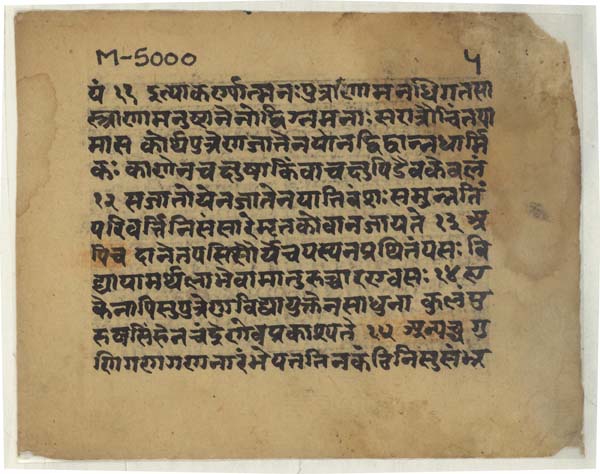 M-5000
५
यं ११ इत्याकर्ण्यात्मनःपुत्राणामनधिगतसा
स्त्राणामनुष्ठानेनोद्विग्नमनाः सराजाचिंतया
मास कोर्थःपुत्रेणजातेनयोनविद्वान्नधार्मि
कः काणेनचक्षुषाकिंवाचक्षुपिडैवकेवलं
१२ सजातोयेनजातेनयातिवंशःसमुन्नतिं
परिवर्त्तिनिसंसारेमृतकोवानजायते १३ अ
पिच दानेतपसिसौर्येचयस्यनप्रथितंयसः वि
द्यायामर्थलाभेवामातुरुच्चारएवसः १४ ए
केनापिसुपुत्रेणविद्यायुक्तेनसाधुना कुलंपु
रुषसिंहेनचंद्रेणेवप्रकाश्यते १५ अन्यच्च गु
णिगणगणनारंभेपततिनकठिनिसुसंभ्र